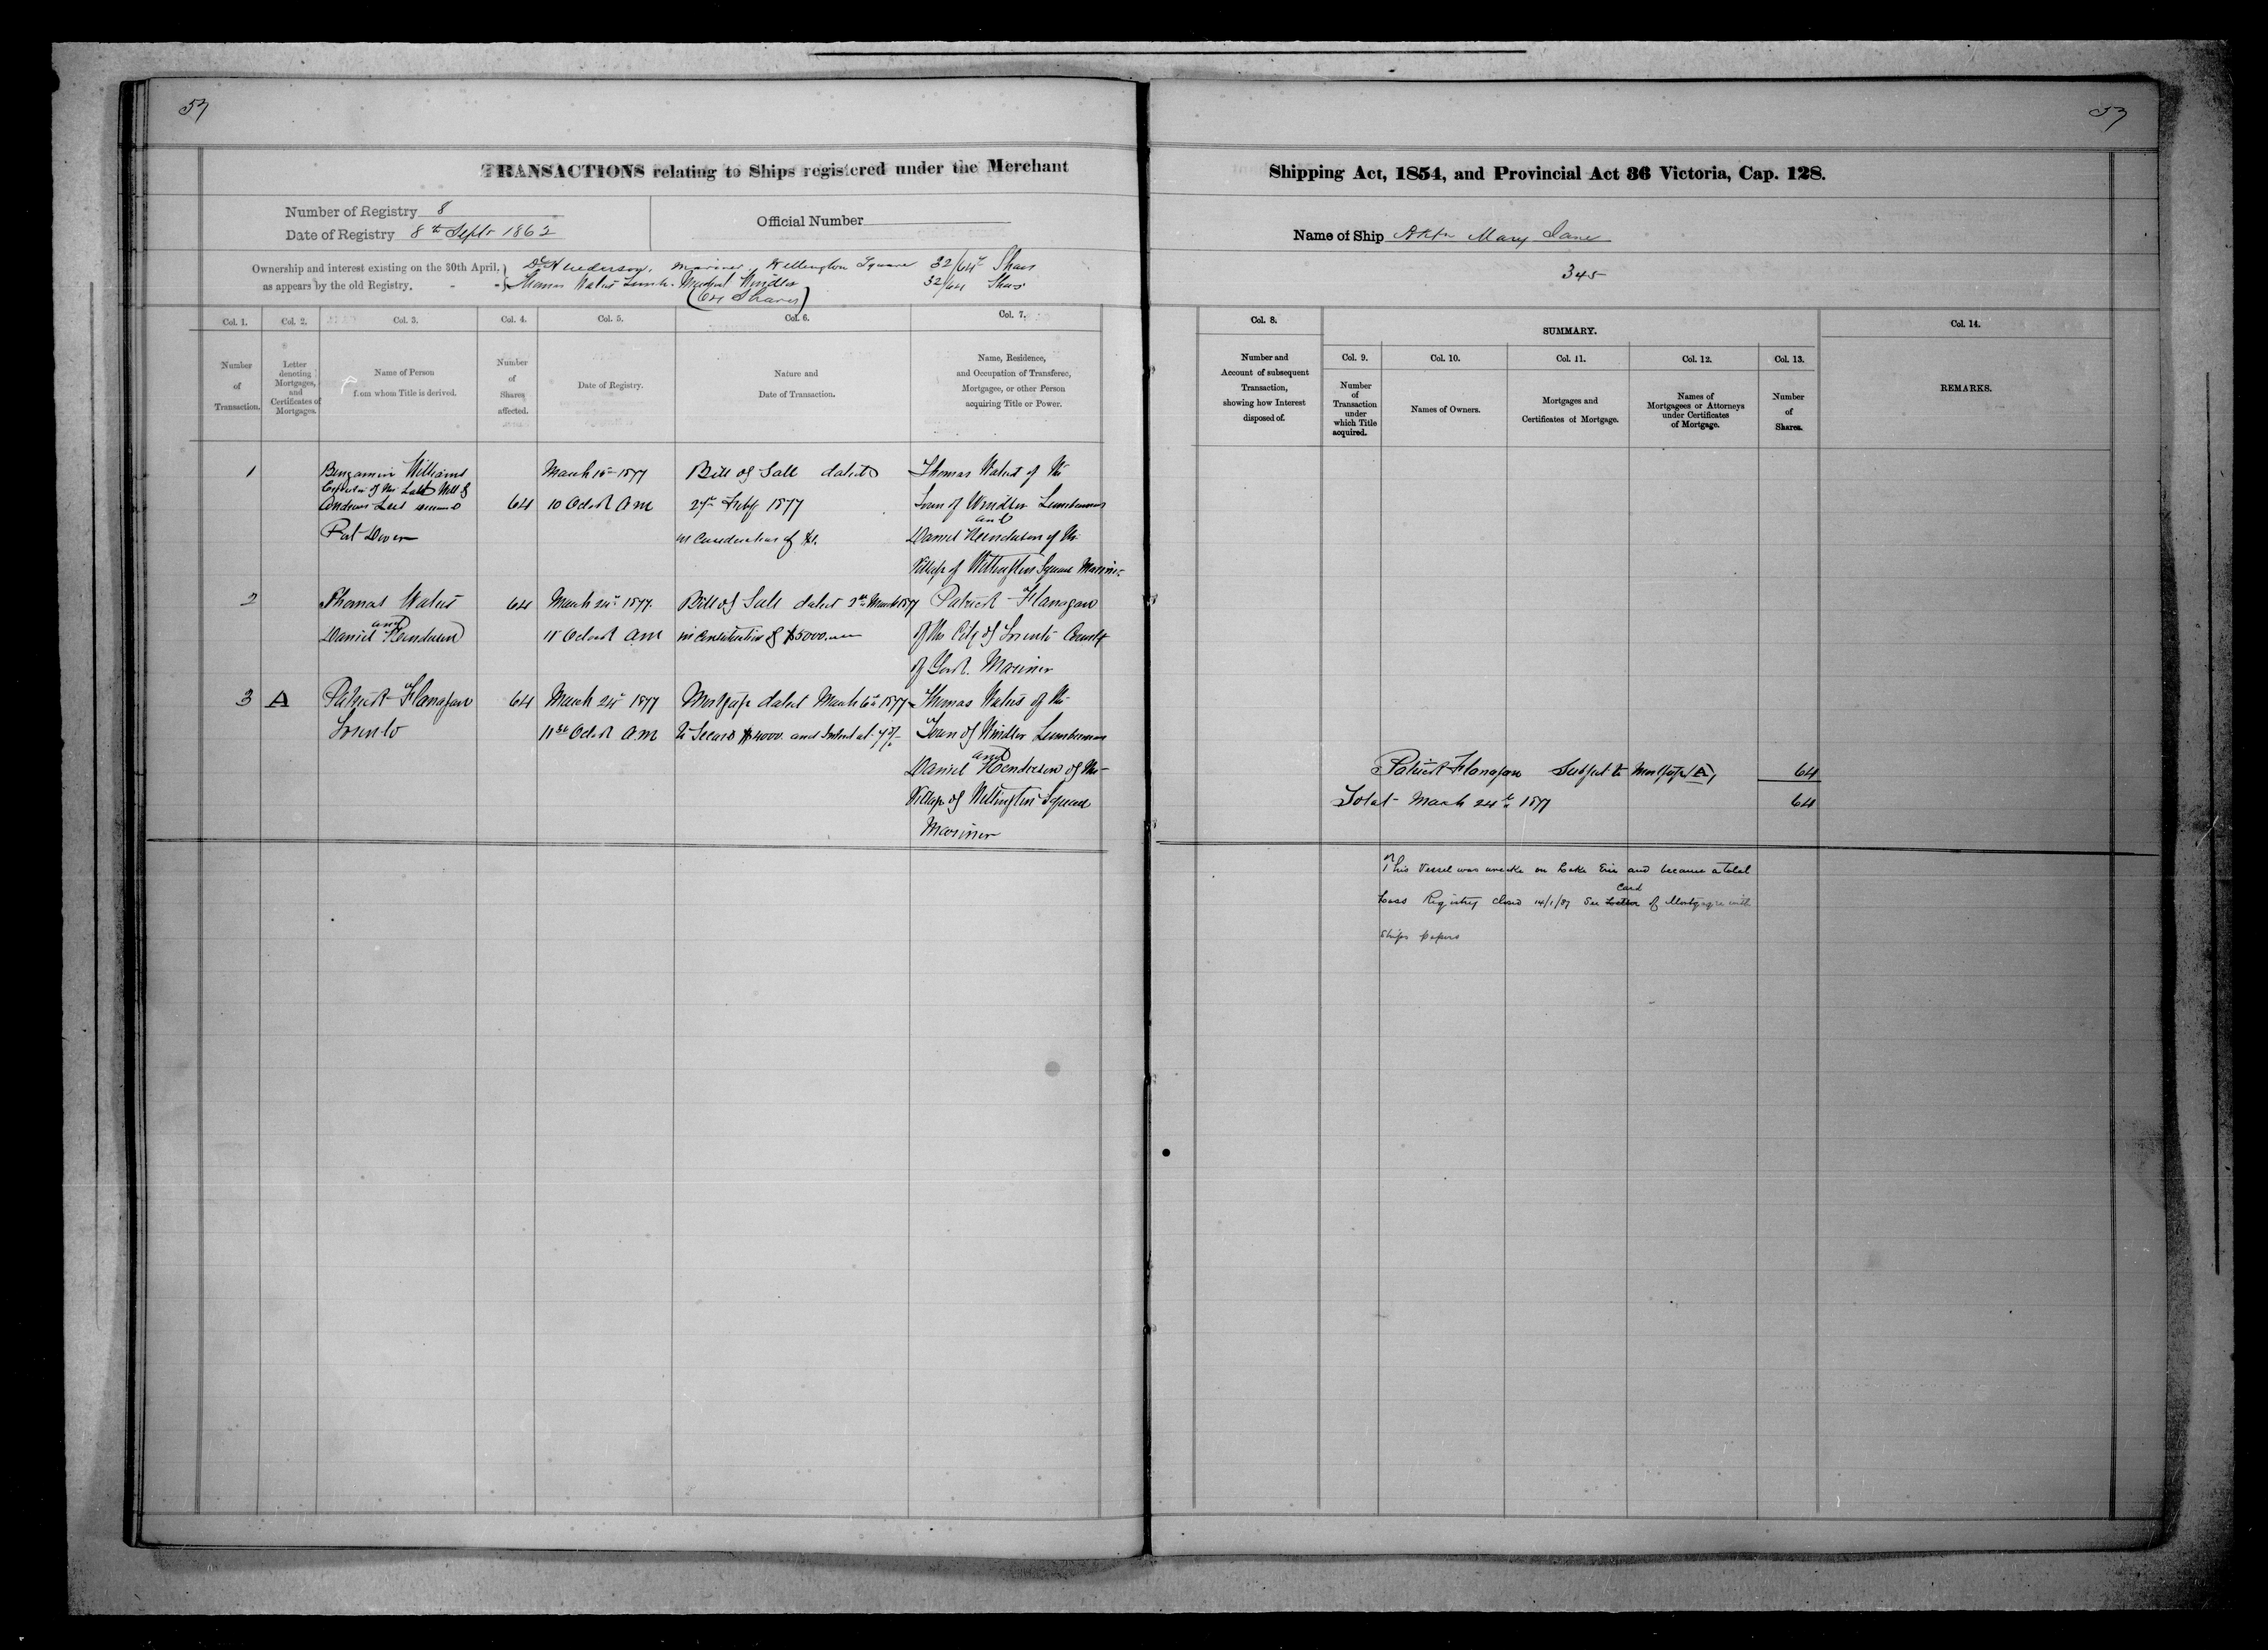 57
57
TRANSACTIONS relating to Ships registered under the Merchant
Shipping Act, 1854, and Provincial Act 36 Victoria, Cap. 128.
Number of Registry 8
Date of Registry 8th Septr 1862
Official Number
Name of Ship Mary Jane
345
Ownership and interest existing on the 30th April,
as appears by the old Registry.
Henderson, Mariner, Wellington Square 32/64 Shares
Thomas Waters Windsor 32/64 Shares
(64 Shares)
Col. 1.
Number
of
Transaction.
Col. 2.
Letter
denoting
Mortgages,
and
Certificates of
Mortgages.
Col. 3.
Name of Person
from whom Title is derived.
Col. 4.
Number
of
Shares
affected.
Col. 5.
Date of Registry.
Col. 6.
Nature and
Date of Transaction.
Col. 7.
Name, Residence,
and Occupation of Transferee,
Mortgagee, or other Person
acquiring Title or Power.
Col. 8.
Number and
Account of subsequent
Transaction,
showing how Interest
disposed of.
SUMMARY.
Col. 9.
Number
of
Transaction
under
which Title
acquired.
Col. 10.
Names of Owners.
Col. 11.
Mortgages and
Certificates of Mortgage.
Col. 12.
Names of
Mortgagees or Attorneys
under Certificates
of Mortgage.
Col. 13.
Number
of
Shares.
Col. 14.
REMARKS.
1
Benjamin Williams
Executor of the Last Will of
Andrew Lees deceased
Port Dover
64
March 1877
10 Oclock AM
Bill of Sale dated
Feby 1877
in Consideration of $1.
Thomas Waters of the
Town of Windsor Lumberman
and
Daniel Henderson of the
Village of Wellington Square Mariner
2
Thomas Waters
and
Daniel Henderson
64
March 24th 1877.
11 Oclock AM
Bill of Sale dated March 1877
in Consideration of $5000.
Patrick Flanagan
of the City of Toronto County
of York. Mariner
3
A
Patrick Flanagan
Toronto
64
March 24th 1877
Oclock AM
Mortgage dated March 6th 1877
to Secure $4000. and Interest at 7%
Thomas Waters of the
Town of Windsor Lumberman
and
Daniel Henderson of the
Village of Wellington Square
Mariner
Patrick Flanagan Subject to Mortgage A, 64
Total March 24th 1877 64
This Vessel was wrecked on Lake Erie and became a total
Loss Registry closed 14/1/87 See Card of Mortgagee with
Ships papers